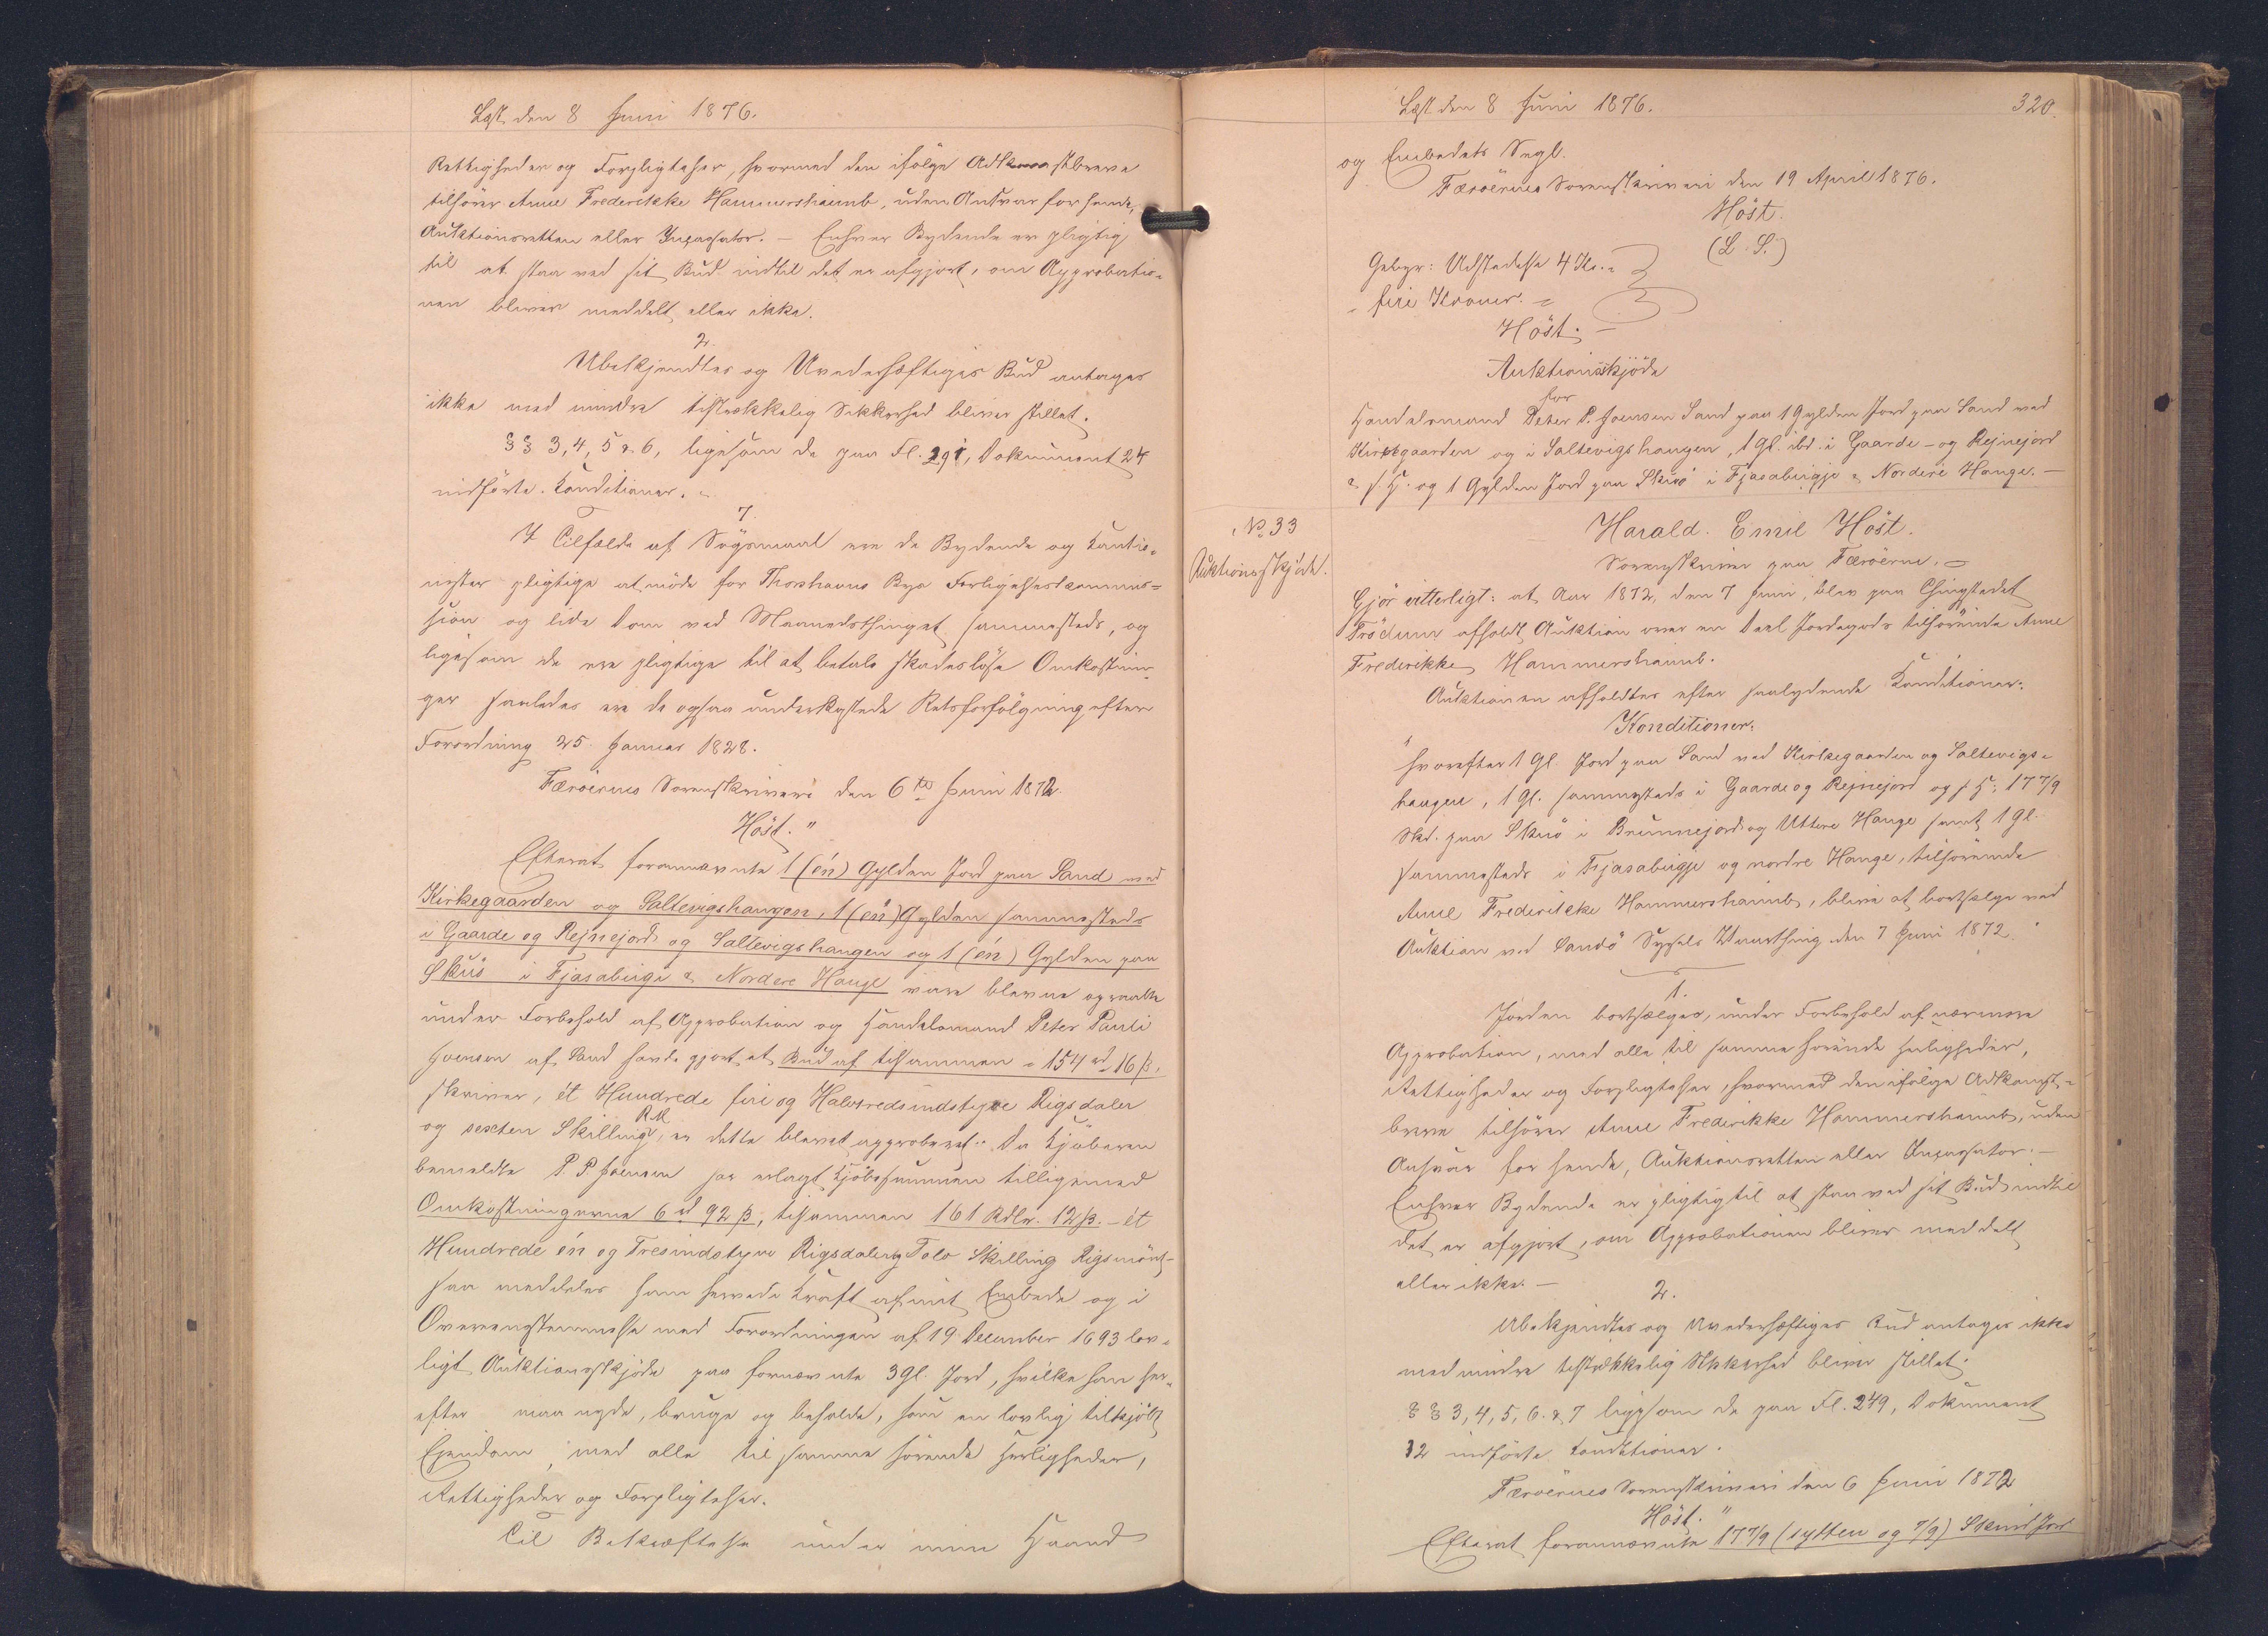 Læst den 8 Juni 1876.
Rettigheder og Forpligtelser, hvormed den ifölge Adkomstbreve
tilhörer Anne Frederikke Hammershaimb, uden Ansvar for hende,
Auktionsretten eller Inqvasitor. – Enhver Bydende er pligtig
til at staa ved sit Bud indtil det er afgjort, om Approbatio-
nen bliver meddelt eller ikke.
2.
Ubekjendtes og Uvederhæftiges Bud antages
ikke med mindre tilstrækkelig Sikkerhed bliver stillet.
§§ 3, 4, 5 & 6, ligesom de paa Fl. 291, Dokument 24
indförte Konditioner.
7.
I Tilfælde af Sögsmaal ere de Bydende og Kautio-
nister pligtige at möde for Thorshavns Byes Forligelseskommis-
sion og lide Dom ved Maanedsthinget sammesteds, og
ligesom de ere pligtige til at betale skadeslöse Omkostnin-
ger saaledes ere de ogsaa underkastede Retsforfölgning efter
Forordning 25. Januar 1828.
Færöernes Sorenskriveri den 6te Juni 1872.
Höst."
Efterat forannævnte 1 (én) Gylden Jord paa Sand ved
Kirkegaarden og Saltevigshaugen, 1 (én) Gylden sammesteds
i Gaarde og Rejnejord og Saltevigshaugen og 1 (én) Gylden paa
Skuö i Fjasabirgi & Nordere Hauge vare blevne opraabte
under Forbehold af Approbation og Handelsmand Peter Pauli
Joensen af Sand havde gjort et Bud af tilsammen 154 rd 16 ß,
skriver, ét Hundrede fire og Halvtredsindstyve Rigsdaler
og sexten Skilling RM, er dette blevet approberet. Da Kjöberen
bemeldte P. P. Joensen har erlagt Kjöbesummen tilligemed
Omkostningerne 6 rd 92 ß, tilsammen 161 Rdlr. 12 ß. – ét
Hundrede én og Tresindstyve Rigsdaler og Tolv Skilling Rigsmönt –
saa meddeles ham herved i Kraft af mit Embede og i
Overensstemmelse med Forordningen af 19 December 1693 lov-
ligt Auktionsskjöde paa fornævnte 3 Gl. Jord, hvilke han her-
efter maa nyde, bruge og beholde, som en lovlig tilkjöbt
Ejendom, med alle til samme hörende Herligheder,
Rettigheder og Forpligtelser.
Til Bekræftelse under min Haand
Læst den 8 Juni 1876.
320.
og Embedets Segl.
Færöernes Sorenskriveri den 19 April 1876.
Höst.
(L. S.)
Gebyr: Udstedelse 4 Kr.
fire Kroner.
Höst.
Auktionsskjöde
for
Handelsmand Peter P. Joensen Sand paa 1 Gylden Jord paa Sand ved
Kirkegaarden og i Saltevigshaugen, 1 Gl. ibd. i Gaarde- og Rejnejord
& s. H. og 1 Gylden Jord paa Skuö i Fjasabirgje & Nordere Hauge. –
No 33
Auktionsskjöde.
Harald Emil Höst.
Sorenskriver paa Færöerne.
Gjör vitterligt: at Aar 1872, den 7 Juni, blev paa Thingstedet
Trödum afholdt Auktion over en Deel Jordegods tilhörende Anne
Frederikke Hammershaimb.
Auktionen afholdtes efter saalydende Konditioner:
Konditioner:
"hvorefter 1 Gl. Jord paa Sand ved Kirkegaarden og Saltevigs-
haugen, 1 Gl. sammesteds i Gaarde og Rejnejord og s. H., 17 7/9
Skd. paa Skuö i Brunnejord og Uttere Hauge samt 1 Gl.
sammesteds i Fjasabirgje og nordre Hauge, tilhörende
Anne Frederikke Hammershaimb, bliver at bortsælge ved
Auktion ved Sandö Syssels Vaarthing den 7 Juni 1872
1.
Jorden bortsælges, under Forbehold af nærmere
Approbation, med alle til samme hörende Herligheder,
Rettigheder og Forpligtelser, hvormed den ifölge Adkomst-
breve tilhörer Anne Frederikke Hammershaimb, uden
Ansvar for hende, Auktionsretten eller Inqvasitor. –
Enhver Bydende er pligtig til at staa ved sit Bud indtil
det er afgjort, om Approbationen bliver meddelt
eller ikke. –
2.
Ubekjendtes og Uvederhæftiges Bud antages ikke
med mindre tilstrækkelig Sikkerhed bliver stillet.
§§ 3, 4, 5, 6 & 7 ligesom de paa Fl. 249, Dokument
12 indförte Konditioner.
Færöernes Sorenskriveri den 6 Juni 1872
Höst."
Efterat forannævnte 17 7/9 (sytten og 7/9) Skind Jord